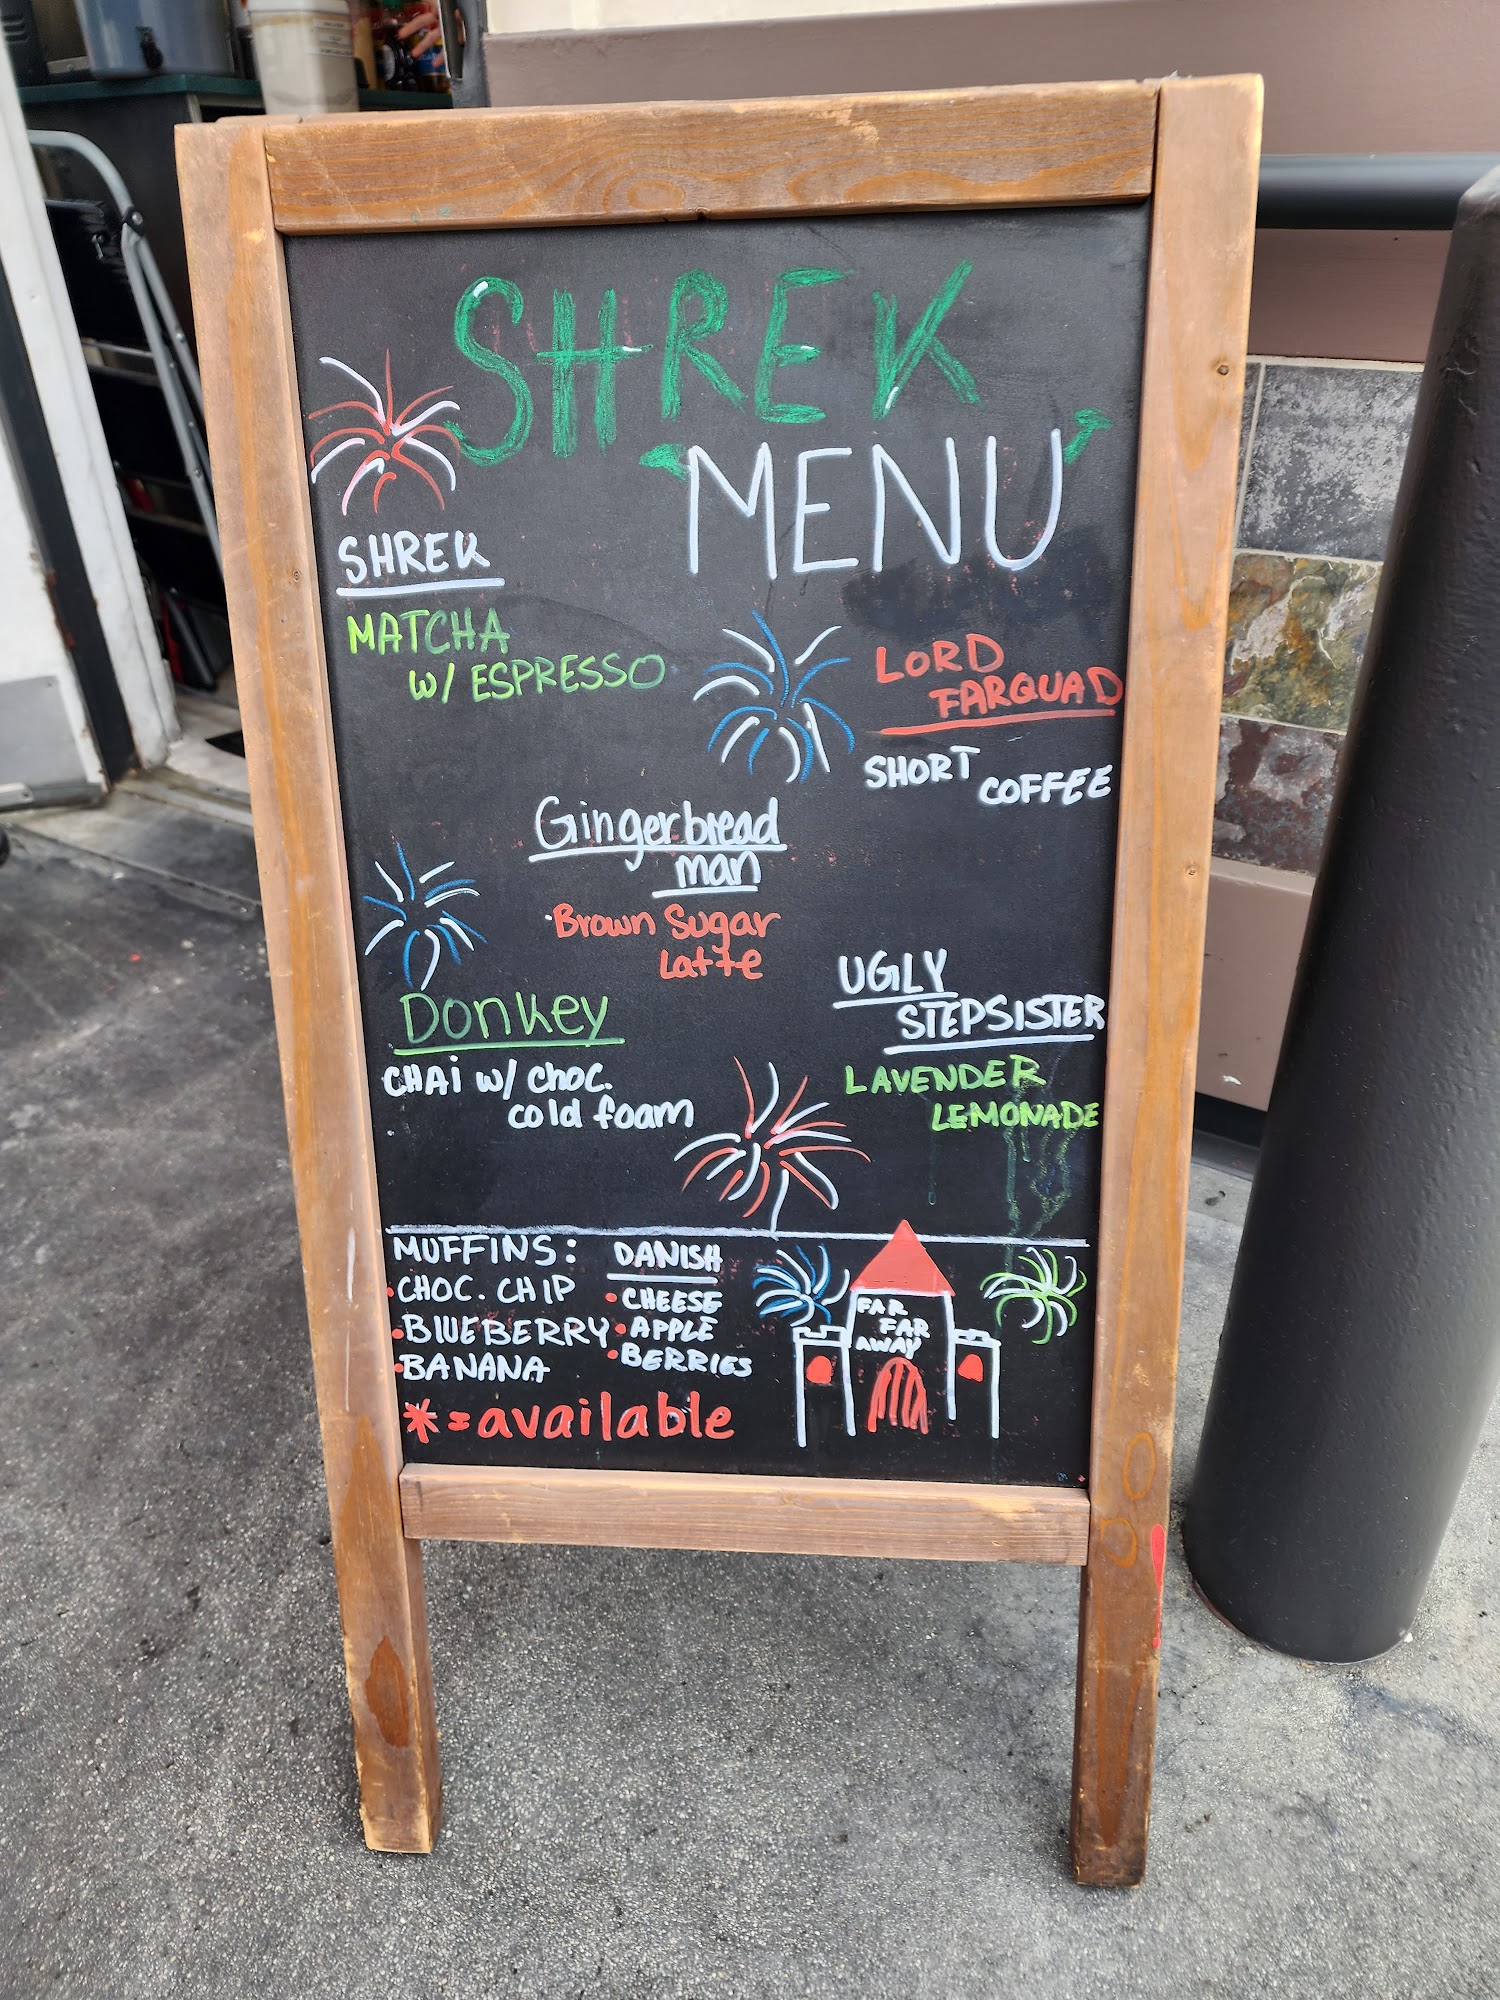 SHREK
MENU
SHREK
MATCHA
W/ ESPRESSO
LORD
FARQUAD
SHORT COFFEE
Gingerbread
man
Brown Sugar
Latte
Donkey
CHAi W/ choc.
cold foam
UGLY
STEPSISTER
LAVENDER
LEMONADE
MUFFINS:
• CHOC. CHIP
• BLUEBERRY
• BANANA
DANISH
• CHEESE
• APPLE
• BERRIES
* = available
FAR
FAR
AWAY